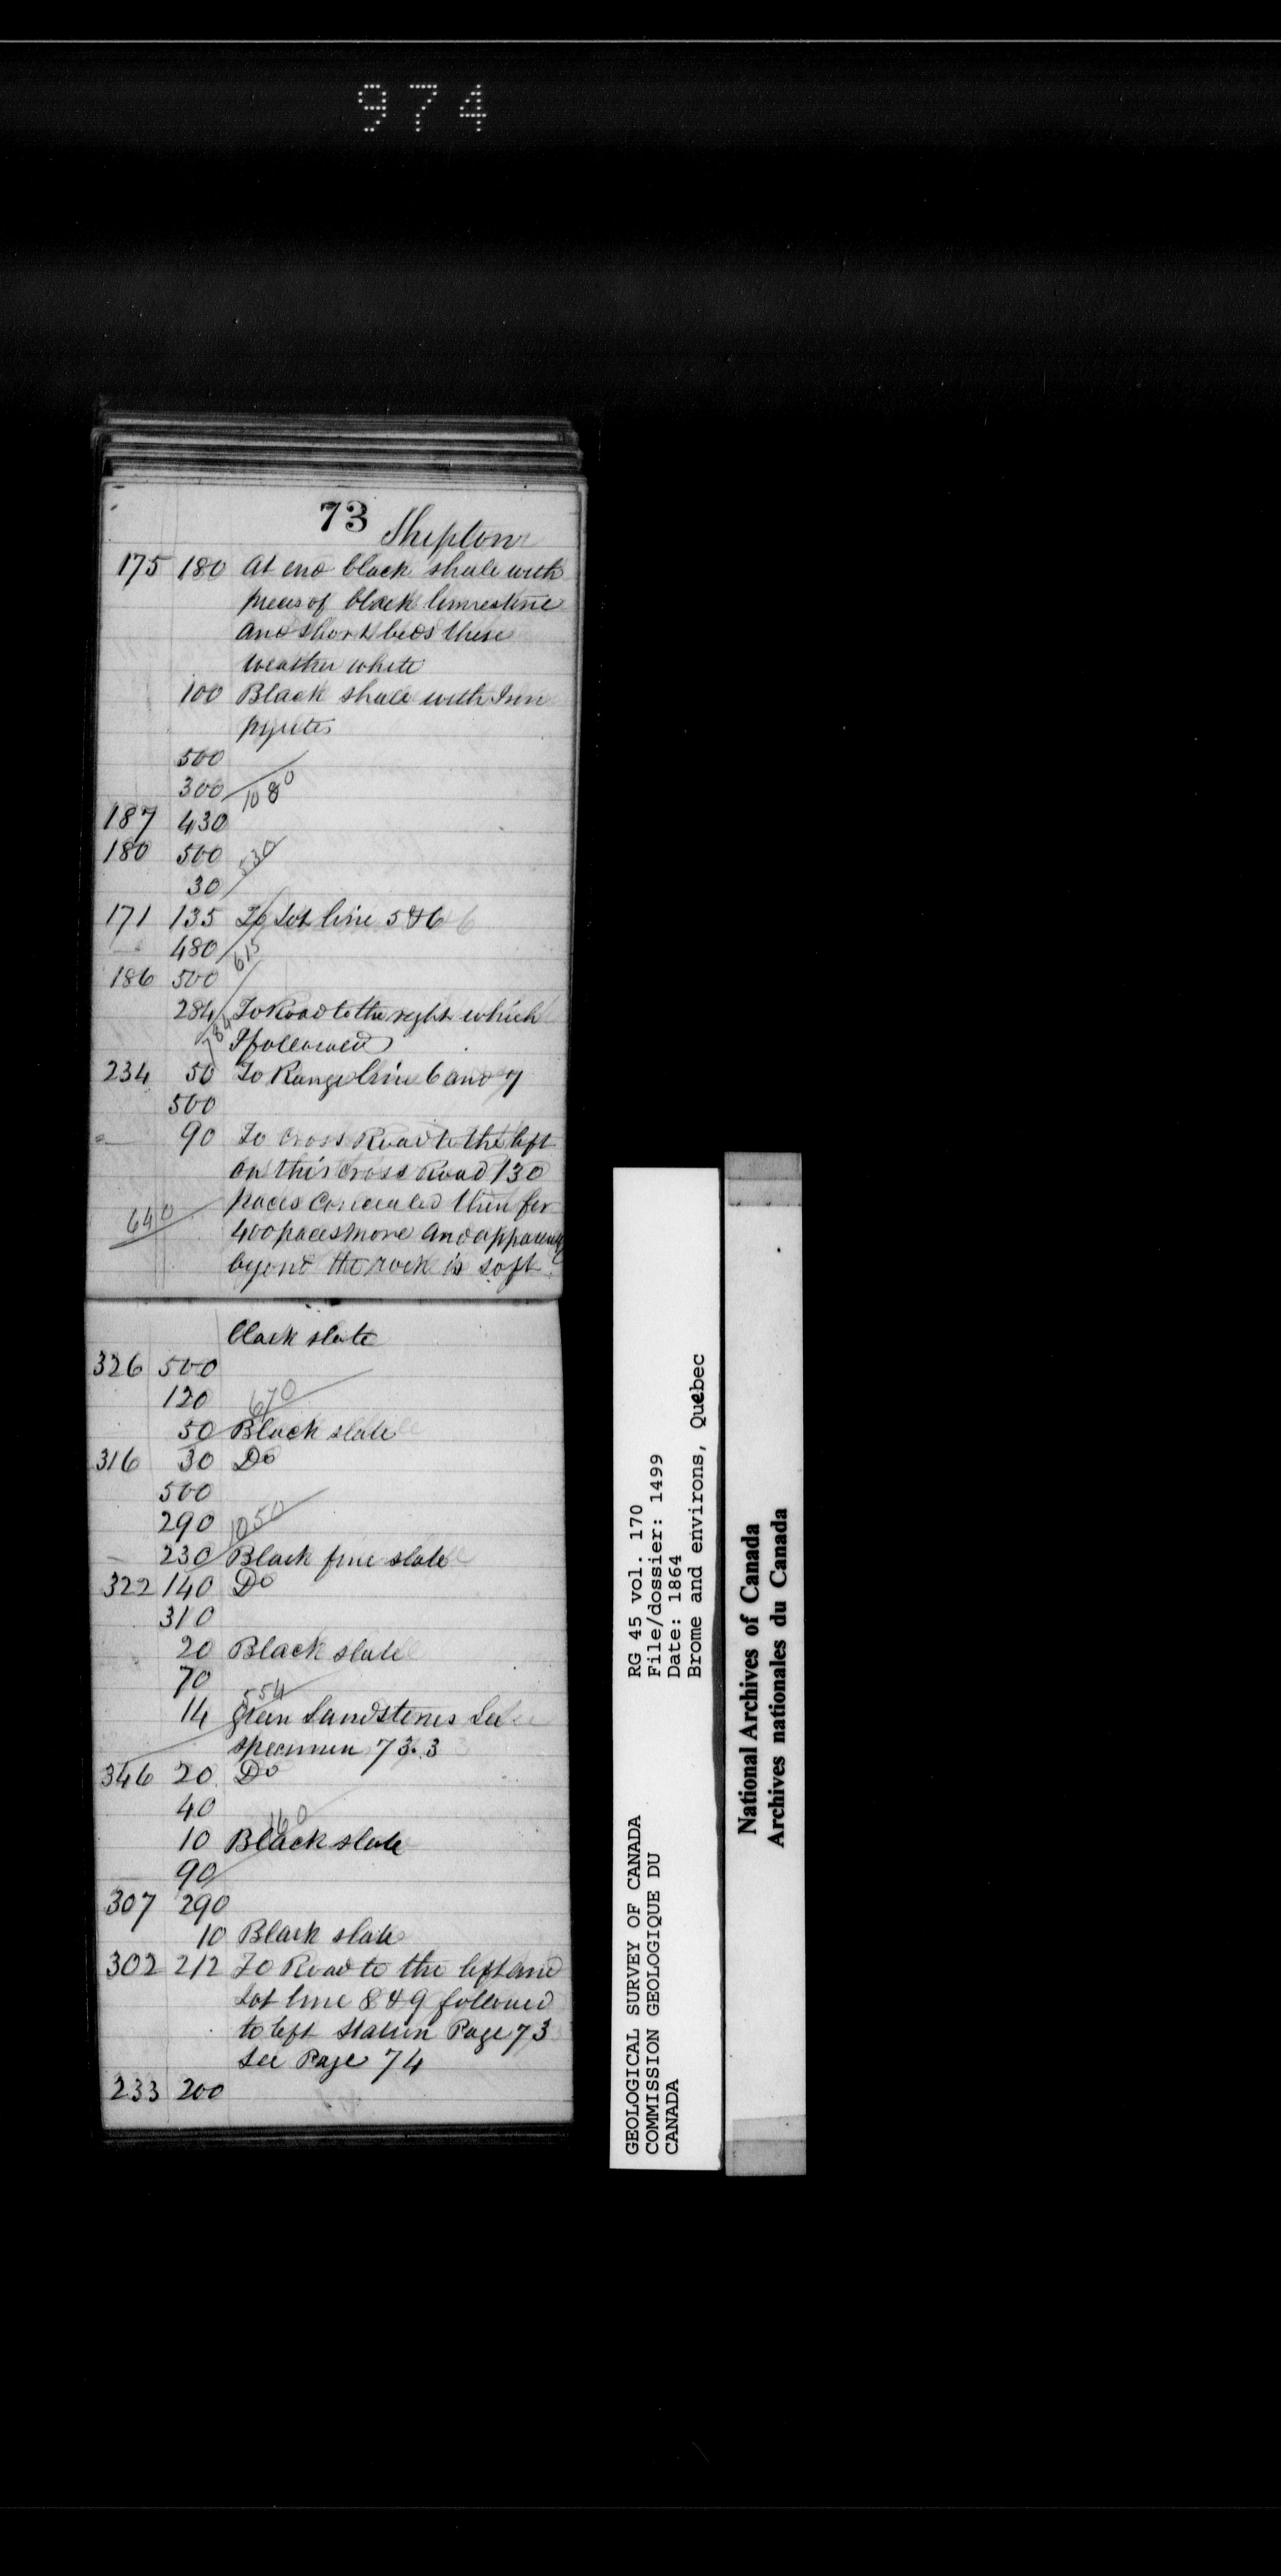 974
73 Shipton
175 180 At end black shale with
pieces of black limestone
and short beds these
weather white
100 Black shale with Iron
pyrites
500
300 1080
187 430
180 500 530
30
171 135 To Lot line 5 & 6
480 615
186 500
284 To Road to the right which
784 I followed
234 50 To Range line 6 and 7
500
90 To Cross Road to the left
on this Cross Road 130
paces Concealed then for
640 400 paces more and apparently
beyond the rock is soft
black slate
326 500
120 670
50 Black slate
316 30 Do
500
290 1050
230 Black fine slate
322 140 Do
310
20 Black slate
70
554
14 Green Sandstones See
specimen 73.3
346 20 Do
40
160
10 Black slate
90
307 290
10 Black slate
302 212 To Road to the left and
Lot line 8 & 9 followed
to left Station Page 73
See Page 74
233 200
GEOLOGICAL SURVEY OF CANADA
COMMISSION GEOLOGIQUE DU
CANADA
RG 45 vol. 170
File/dossier: 1499
Date: 1864
Brome and environs, Quebec
National Archives of Canada
Archives nationales du Canada